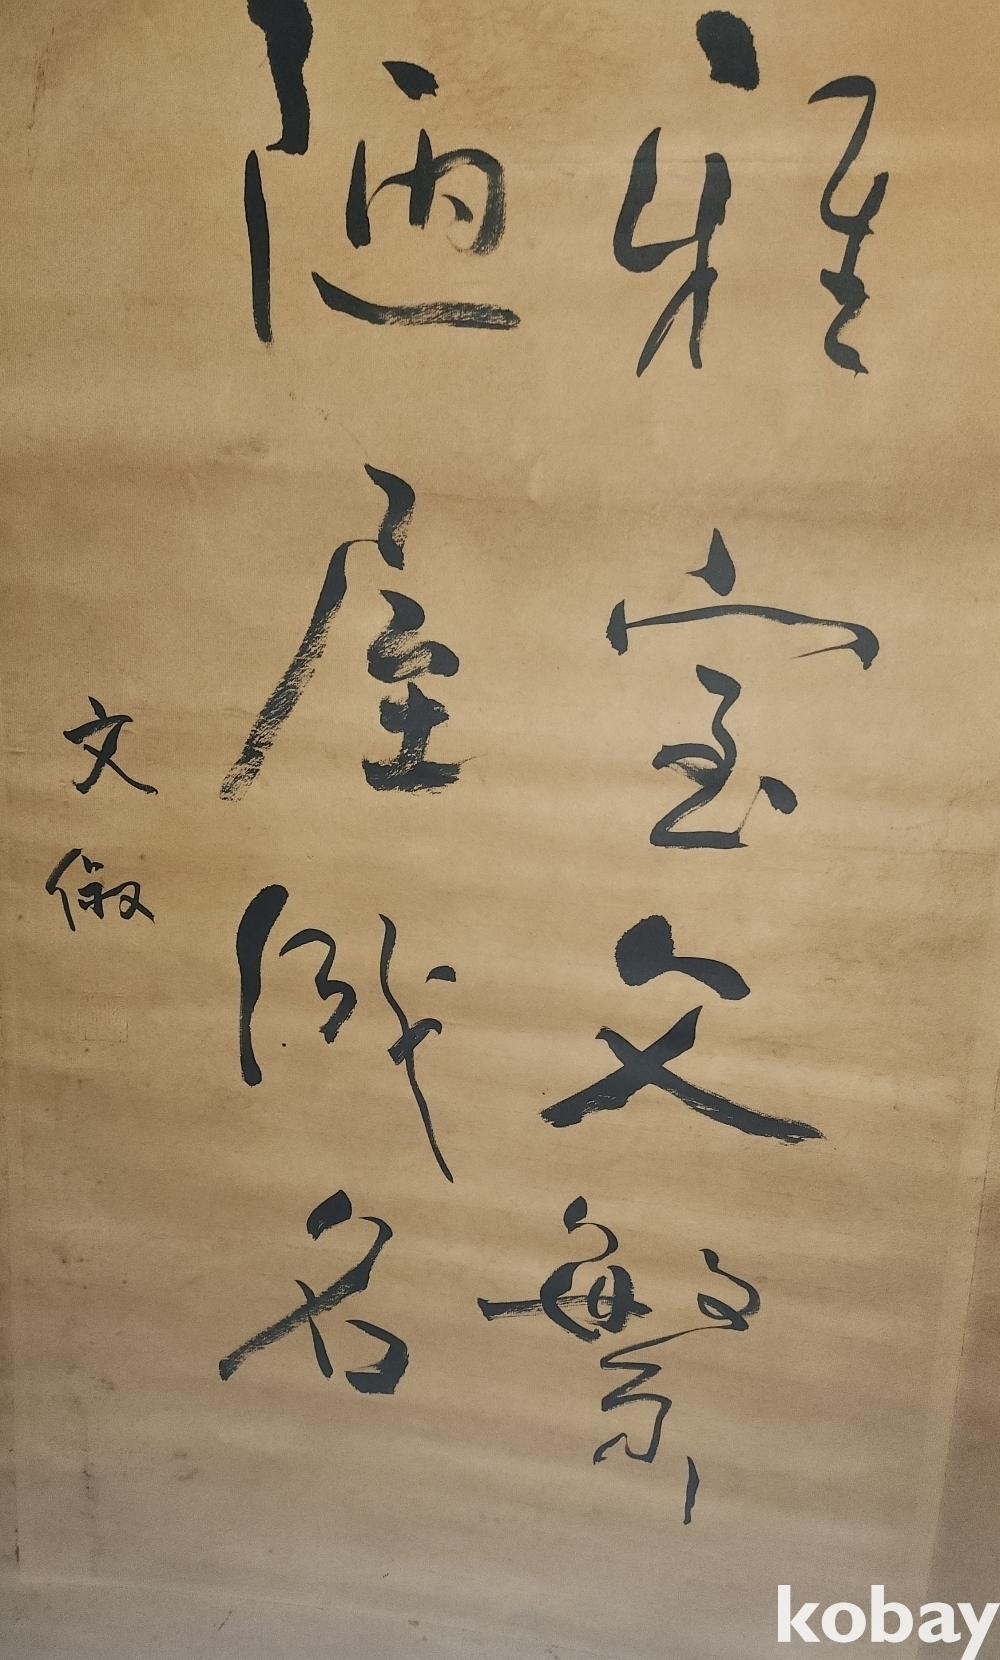 雅室文繁
陋屋名
文俶
kobay